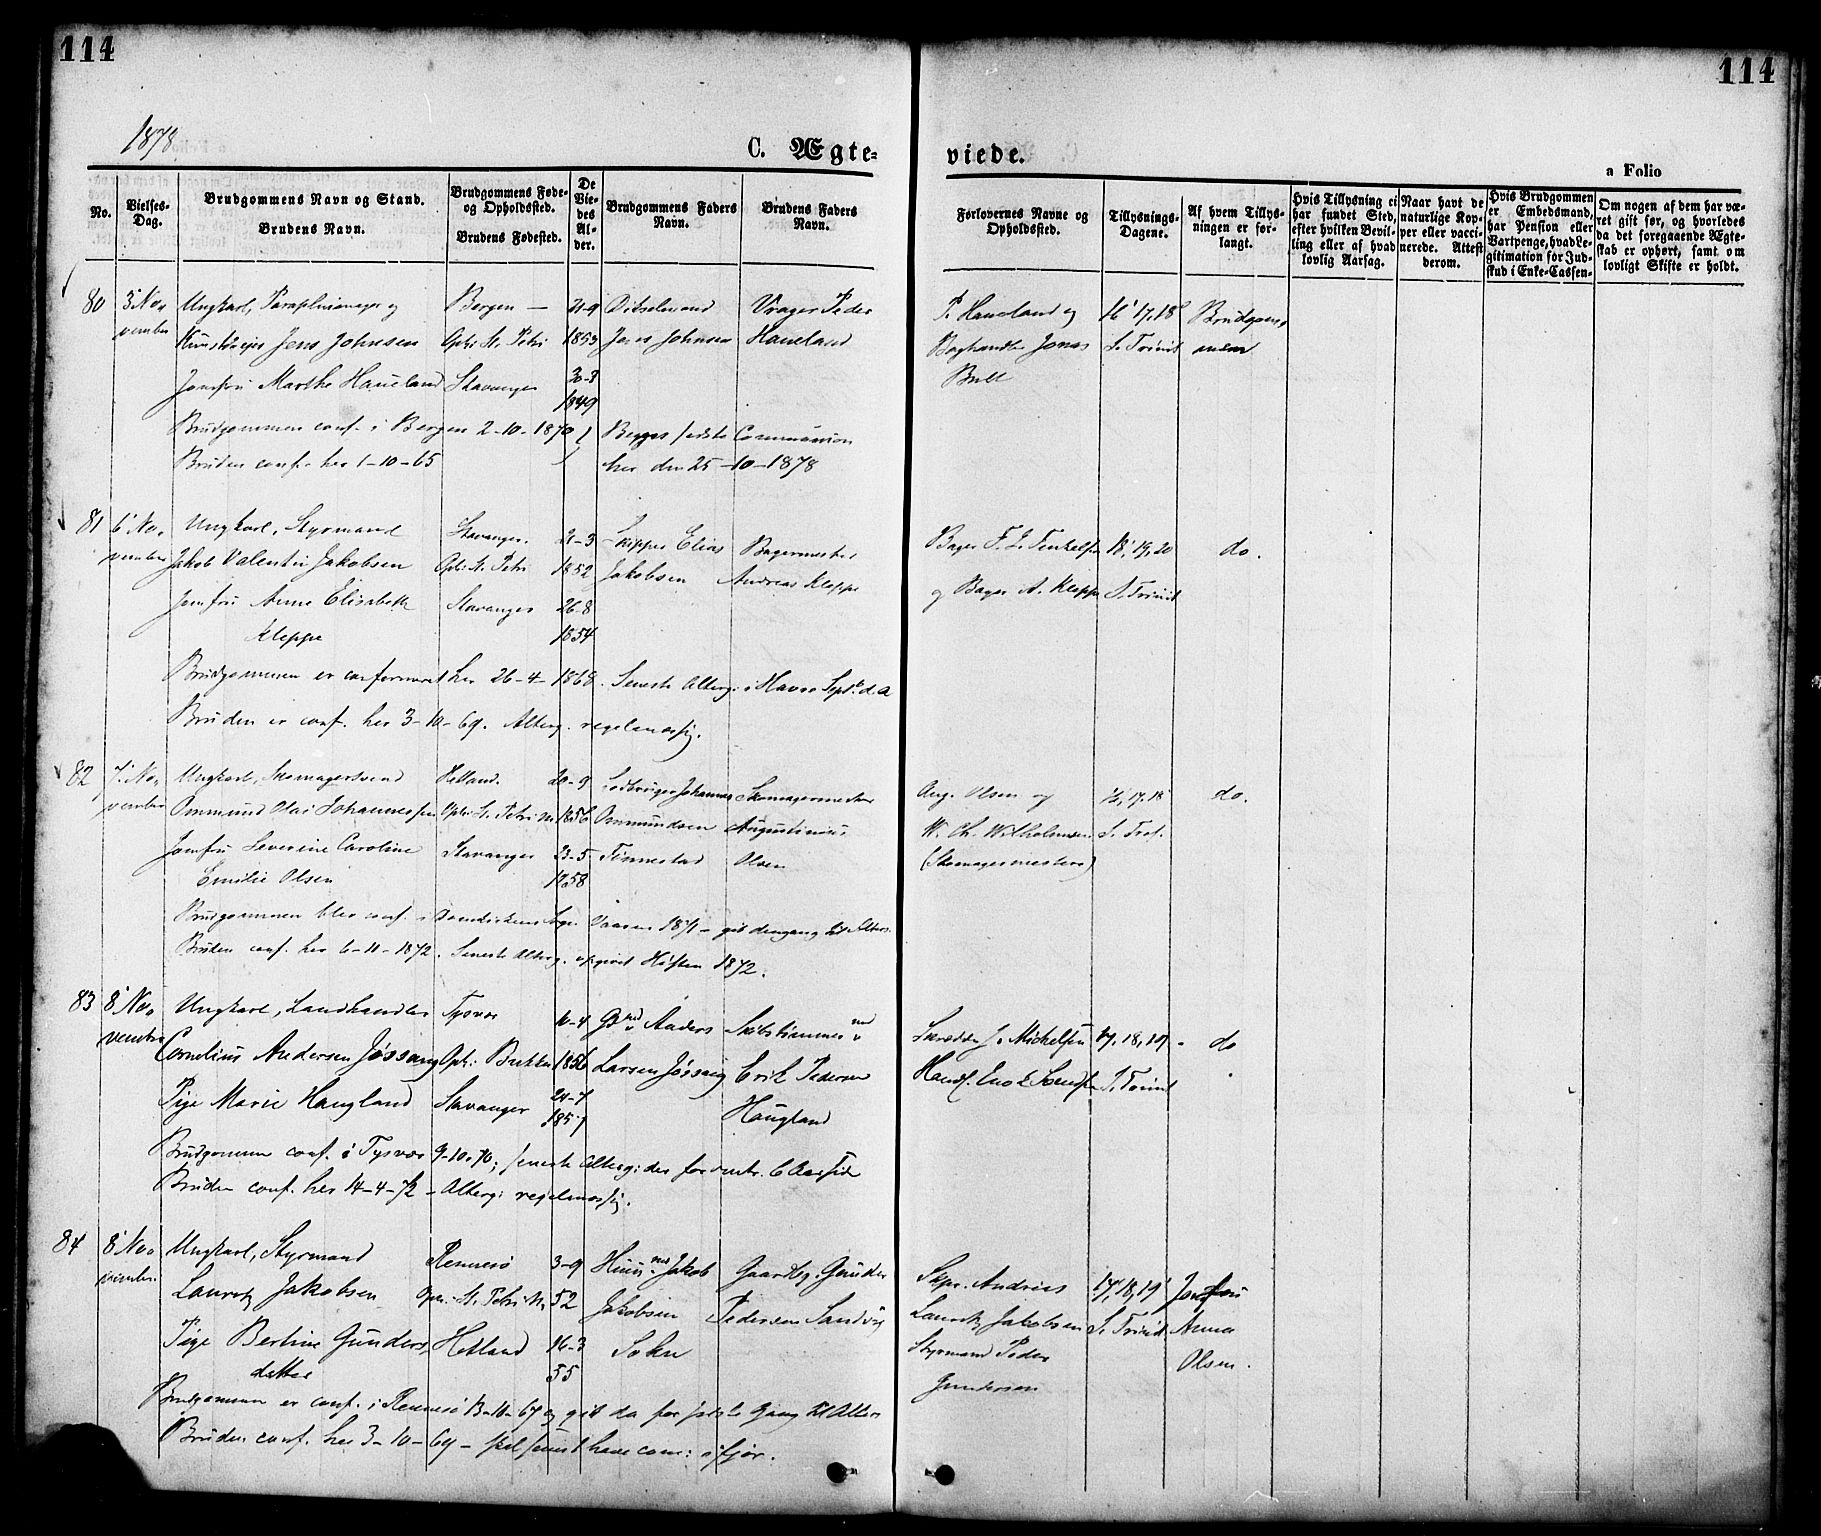 114
114
1878
C. Ægte-
viede.
a Folio
No.
Vielses-
Dag.
Brudgommens Navn og Stand.
Brudens Navn.
Brudgommens Føde-
og Opholdsted.
Brudens Fødested.
De
Vie-
des
Al-
der.
Brudgommens Faders
Navn.
Brudens Faders
Navn.
Forlovernes Navne og
Opholdsted.
Tillysnings-
Dagene.
Af hvem Tillys-
ningen er for-
langt.
Hvis Tillysning ei
har fundet Sted,
efter hvilken Bevil-
ling eller af hvad
lovlig Aarsag.
Naar havt de
naturlige Kop-
per eller vacci-
nerede. Attest
derom.
Hvis Brudgommen
er Embedsmand,
har Pension eller
Vartpenge, hvad Le-
gitimation for Ind-
skud i Enke-Cassen.
Om nogen af dem har væ-
ret gift før, og hvorledes
da det foregaaende Ægte-
skab er ophørt, samt om
lovligt Skifte er holdt.
80 5 No- Ungkarl, Paraplymager og Bergen — 21-9 Vrager Peder P. Haueland og 16, 17, 18 Brudgom-
vember Kunstdreier Jens Johnsen Oph: St. Petri 1853 Jens Johnsen Haueland Boghandler Jonas S. Trinit men
Jomfru Marthe Haueland Stavanger
1849 Bull
Brudgommen conf. i Bergen 2-10-1870 Begges sidste Communion
Bruden conf. her 1-10-65 her den 25-10-1878
81 6 No- Ungkarl, Styrmand Stavanger. 21-3 Skipper Elias Bagermester Bager 18, 19, 20 do.
vember Jakob Valentin Jakobsen Oph: St. Petri 1852 Jakobsen Andreas Kleppe og Bager A. Kleppe S. Trinit
Jomfru Anne Elisabeth Stavanger 26-8
Kleppe 1854
Brudgommen er confirmeret her 26-4-1868. Seneste Alterg: i Havre Septb. d. A
Bruden er conf. her 3-10-69. Alterg. regelmæssig.
82 7 No- Ungkarl, Skomagersvend Hetland. 20-9 Johannes Skomagermester Aug. Olsen og 16, 17, 18 do.
vember Ommund Olai Johannessen Oph: St. Petri M. 1856 Ommundsen Augustinius W. Ch. Wilhelmsen S. Trot.
Jomfru Severine Caroline Stavanger 23-5 Tinnestad Olsen (Skomagermestere)
Emilie Olsen 1858
Brudgommen blev conf. i Domkirkens Sogn Vaaren 1871 – gik dengang til Alters.
Bruden conf. her 6-11-1872. Seneste Alterg. Høsten 1872.
83 8 No- Ungkarl, Landhandler Tysvær 16-4 Gdmd Anders Skibstømmermd Skrædder J. Michelsen 17, 18, 19 do
vember Cornelius Andersen Jøssang Oph: Bukken 1856 Larsen Jøssang Erik Pedersen S. Trinit
Pige Marie Haugland Stavanger 24-7 Haugland
1857
Brudgommen conf. i Tysvær 9-10-70; seneste Alterg: der for omtr. 6 Aar siden
Bruden conf. her 14-4-72 – Alterg: regelmæssig.
84 8 No- Ungkarl, Styrmand Rennesø 3-9 Huusmd Jakob Gaardbg. Gunder Skpr. Andreas 17, 18, 19 Jomfru
vember. Lauritz Jakobsen Oph: St. Petri M. 52 Jakobsen Pedersen Sandvig Lauritz Jakobsen S. Trinit Anna
Pige Bertine Gunders- Hetland 16-3 Sokn Styrmand Peder Olsen.
datter 55 Gundersen
Brudgommen er conf. i Rennesø 13-10-67 og gik da for sidste Gang til Alters
Bruden conf. her 3-10-69 – skal senest have com: ifjor.